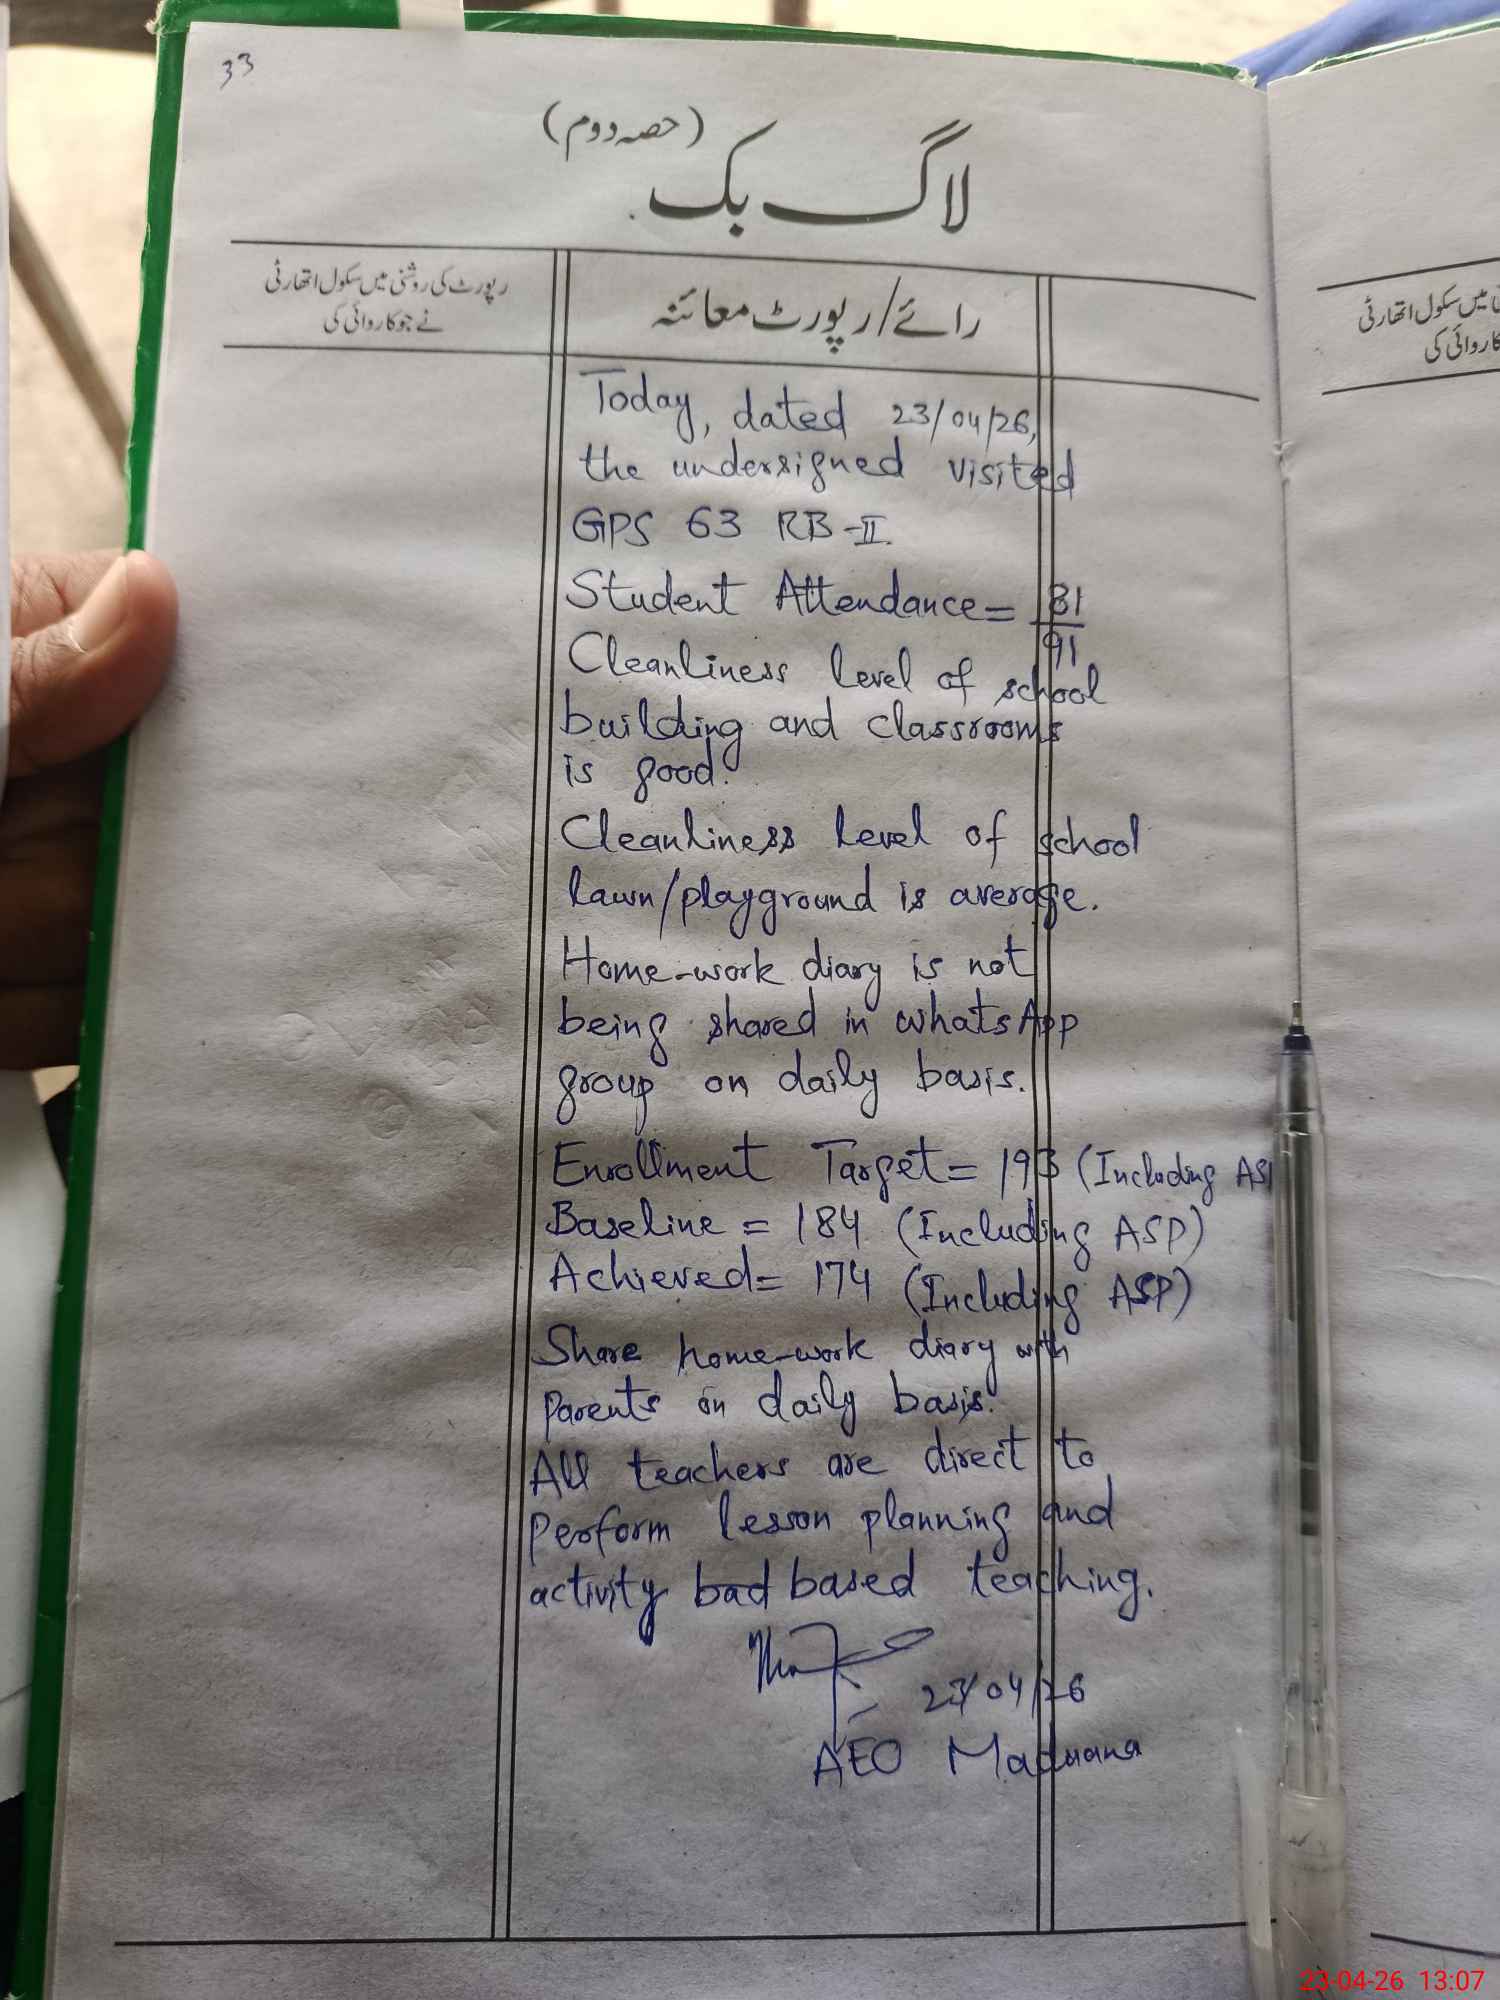 33
(حصہ دوم)
لاگ بک
رپورٹ کی روشنی میں سکول اتھارٹی
نے جو کاروائی کی
رائے/رپورٹ معائنہ
Today, dated 23/04/26,
the undersigned visited
GPS 63 RB-II.
Student Attendance = 81/91
Cleanliness level of school
building and classrooms
is good.
Cleanliness level of school
lawn/playground is average.
Home-work diary is not
being shared in whatsApp
group on daily basis.
Enrollment Target = 193 (Including AS
Baseline = 184 (Including ASP)
Achieved = 174 (Including ASP)
Share home-work diary with
parents on daily basis.
All teachers are direct to
perform lesson planning and
activity bad based teaching.
23/04/26
AEO Maduana
میں سکول اتھارٹی
کاروائی کی
23-04-26 13:07